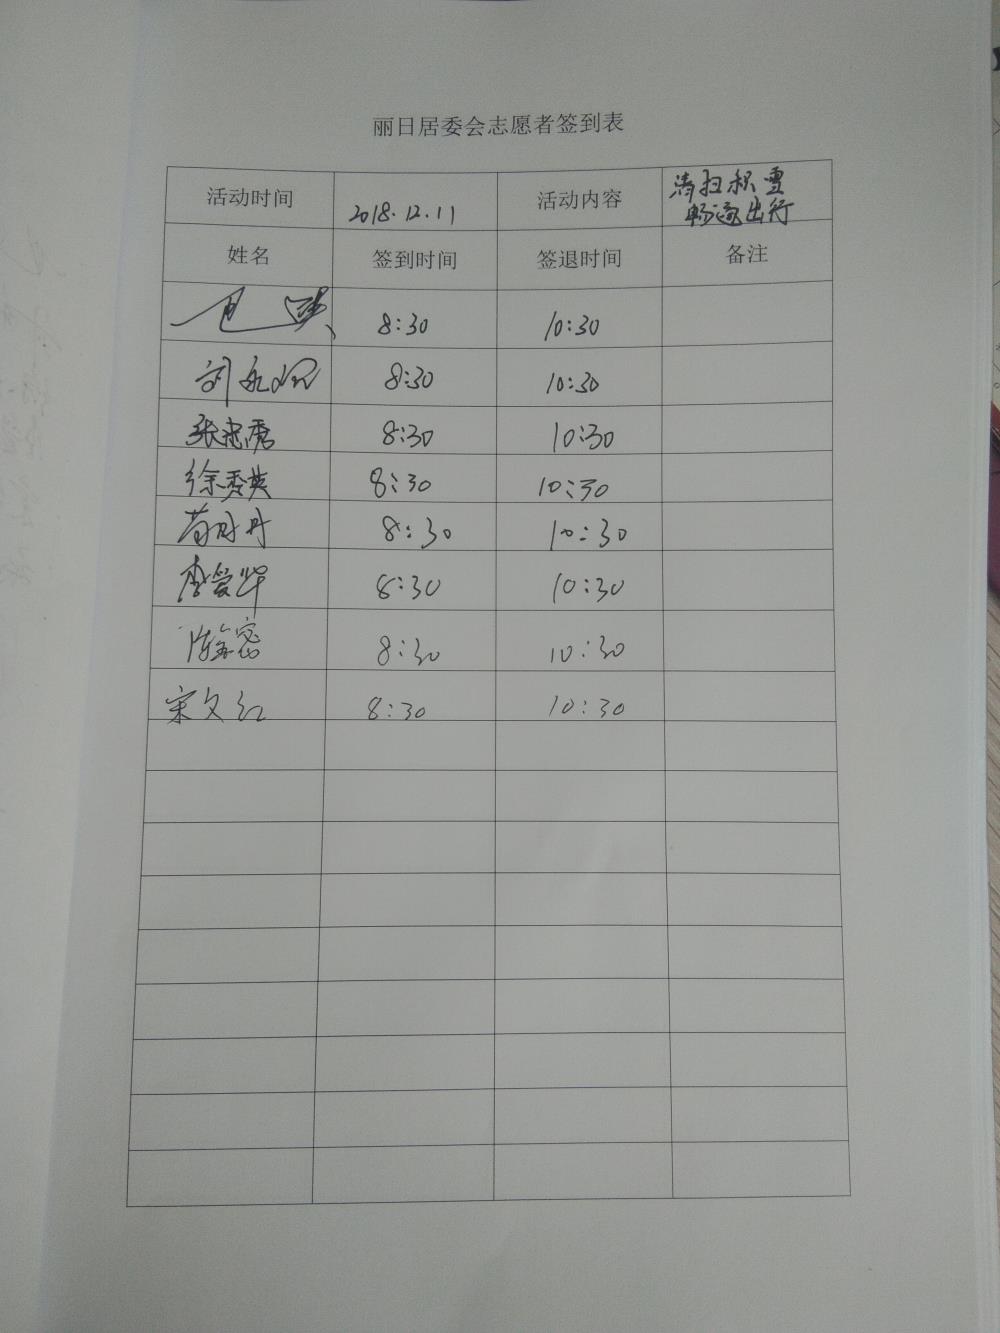 丽日居委会志愿者签到表
活动时间 2018.12.11 活动内容 清扫积雪
畅通出行
姓名 签到时间 签退时间 备注
8:30 10:30
刘 8:30 10:30
张忠秀 8:30 10:30
徐秀英 8:30 10:30
苗丹丹 8:30 10:30
李爱华 8:30 10:30
陈金密 8:30 10:30
宋文红 8:30 10:30